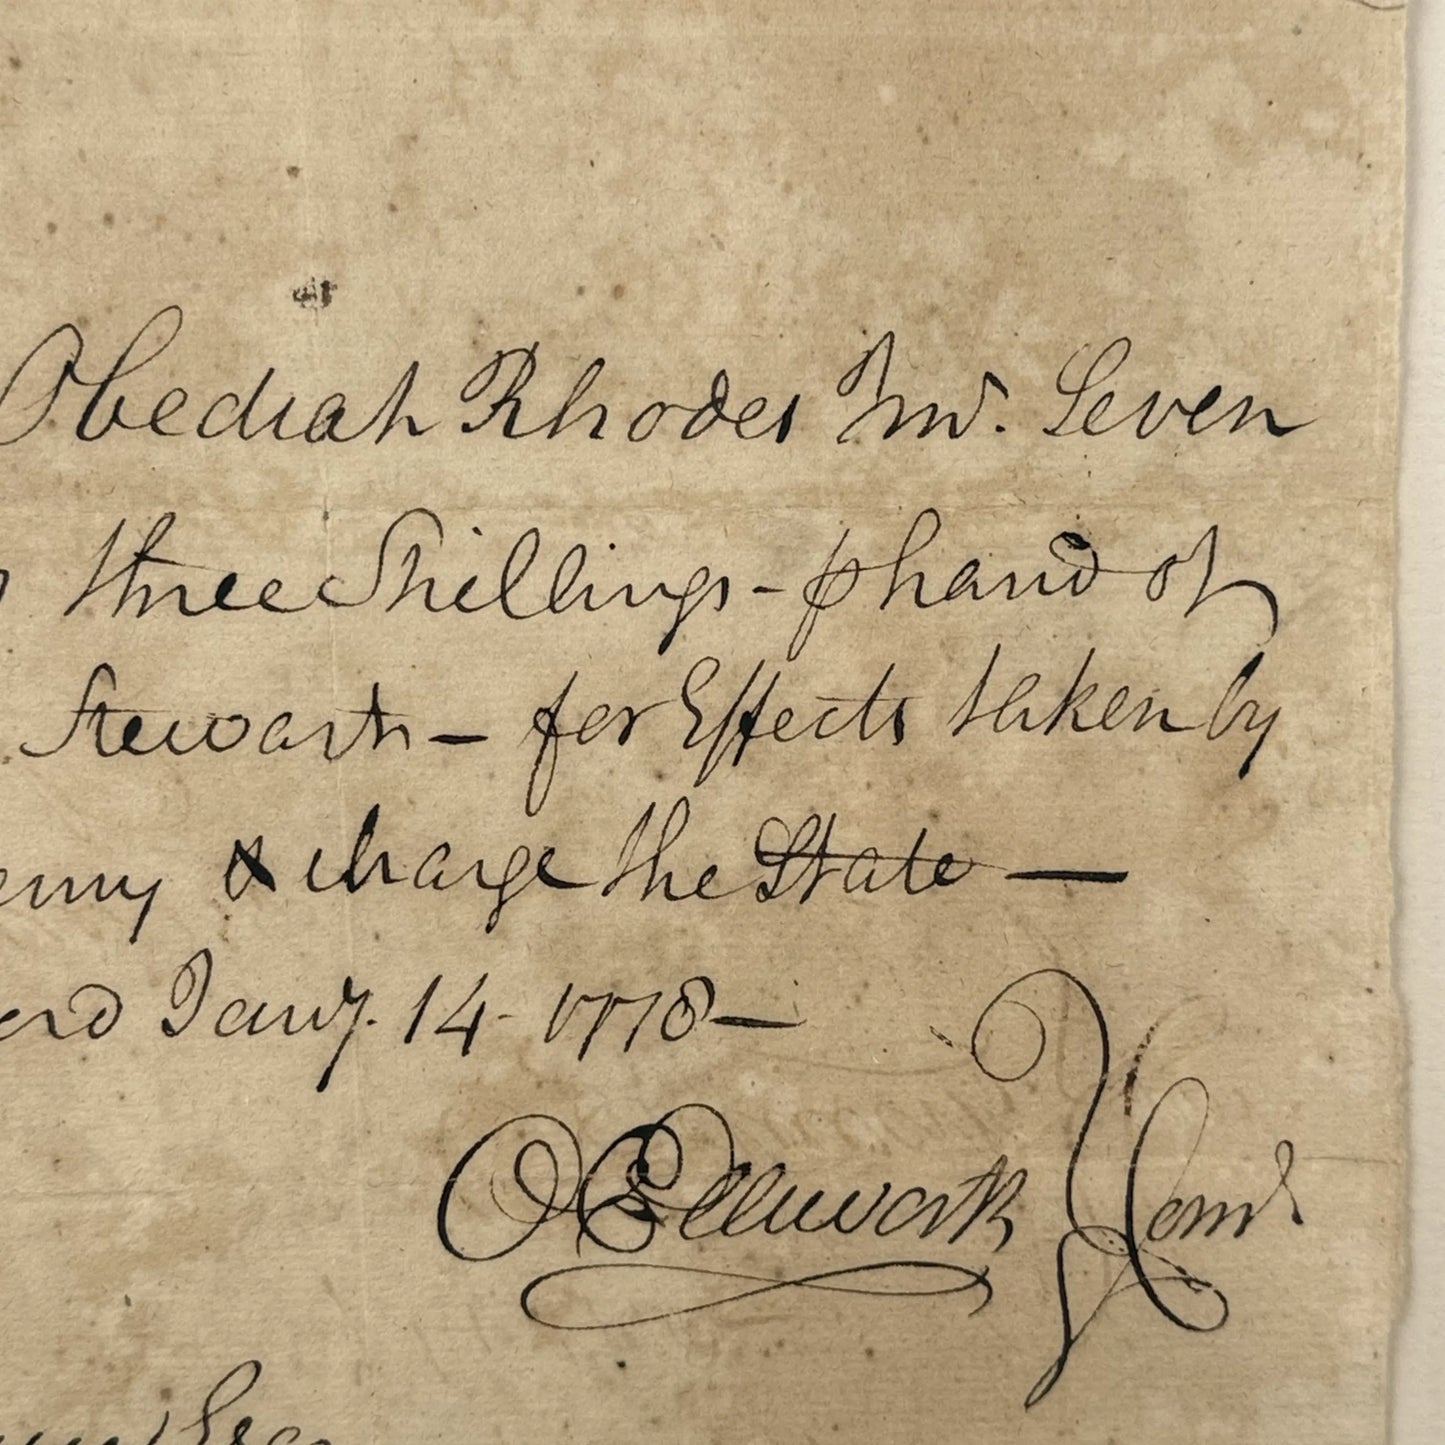 Obediah Rhodes Junr. Seven
three Shillings - ꝑ hand of
Stewart - for Effects taken by
emy & charge the State —
erd Jany. 14 - 1778 —
O Ellsworth Comt
Esq